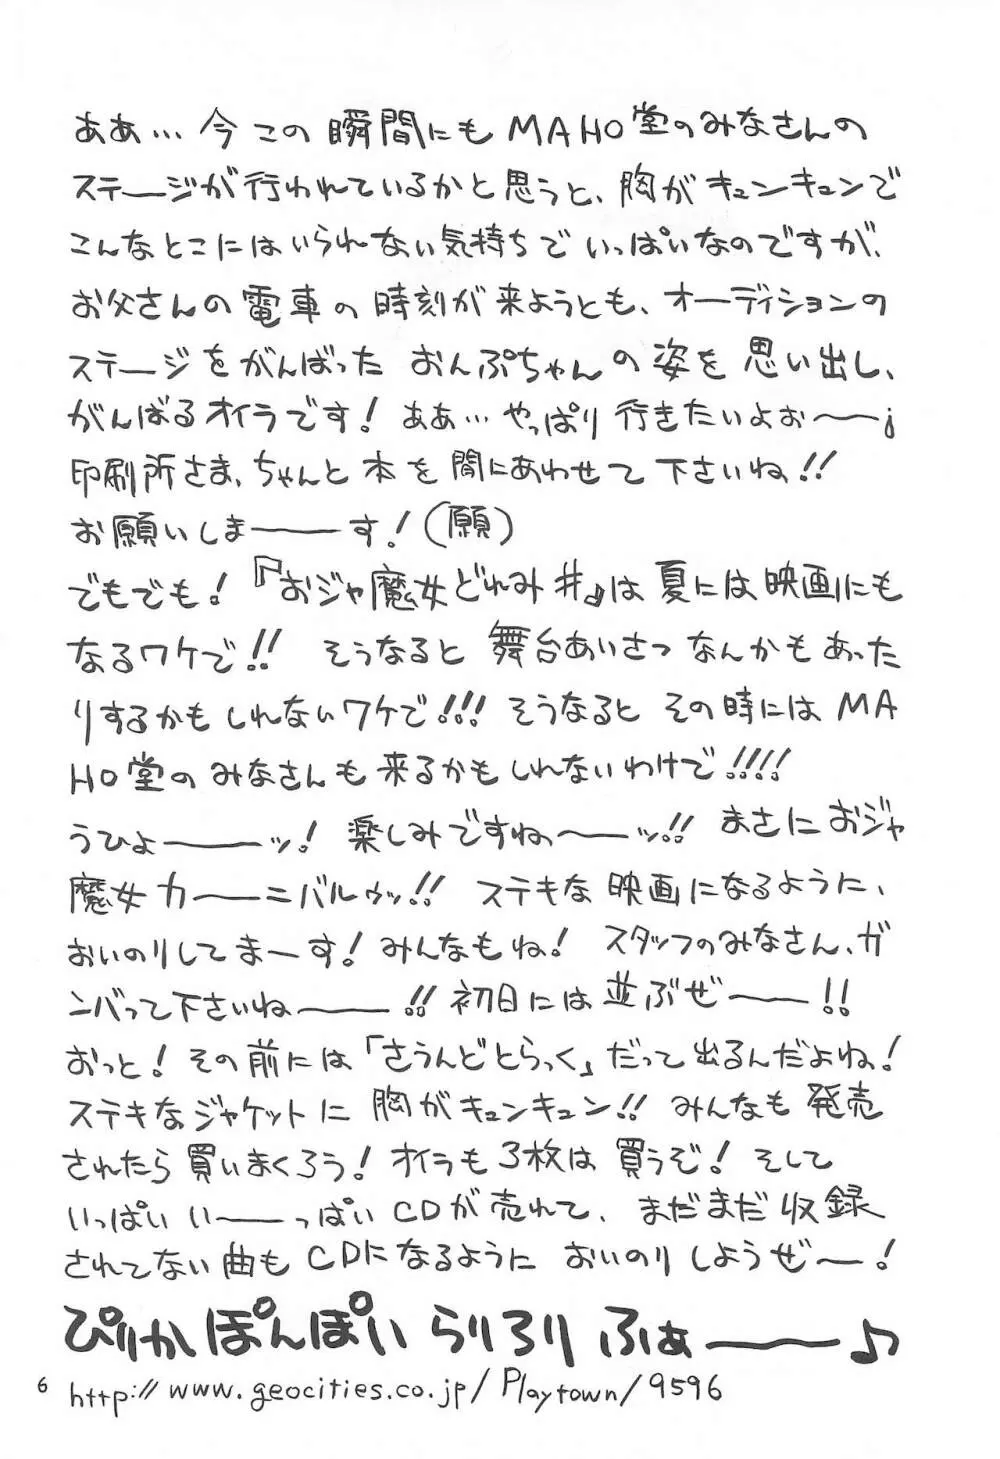 ああ…今この瞬間にもMAHO堂のみなさんの
ステージが行われているかと思うと、胸がキュンキュンで
こんなとこにはいられない気持ちでいっぱいなのですが、
お父さんの電車の時刻が来ようとも、オーディションの
ステージをがんばったおんぷちゃんの姿を思い出し、
がんばるオイラです!ああ…やっぱり行きたいよぉ〜〜¡
印刷所さま、ちゃんと本を間にあわせて下さいね!!
お願いしま――す!(願)
でもでも!『おジャ魔女どれみ#』は夏には映画にも
なるワケで!!そうなると舞台あいさつなんかもあった
りするかもしれないワケで!!!そうなるとその時にはMA
HO堂のみなさんも来るかもしれないわけで!!!!
うひょ――ッ!楽しみですね〜――ッ!!まさにおジャ
魔女カ――ニバルゥッ!!ステキな映画になるように、
おいのりしてまーす!みんなもね!スタッフのみなさん、ガ
ンバって下さいね〜――!!初日には並ぶぜ〜――!!
おっと!その前には「さうんどとらっく」だって出るんだよね!
ステキなジャケットに胸がキュンキュン!!みんなも発売
されたら買いまくろう!オイラも3枚は買うぞ!そして
いっぱいい――っぱいCDが売れて、まだまだ収録
されてない曲もCDになるようにおいのりしようぜ〜!
ぴりかぽんぽい らりろり ふぁ〜――♪
6 http://www.geocities.co.jp/Playtown/9596